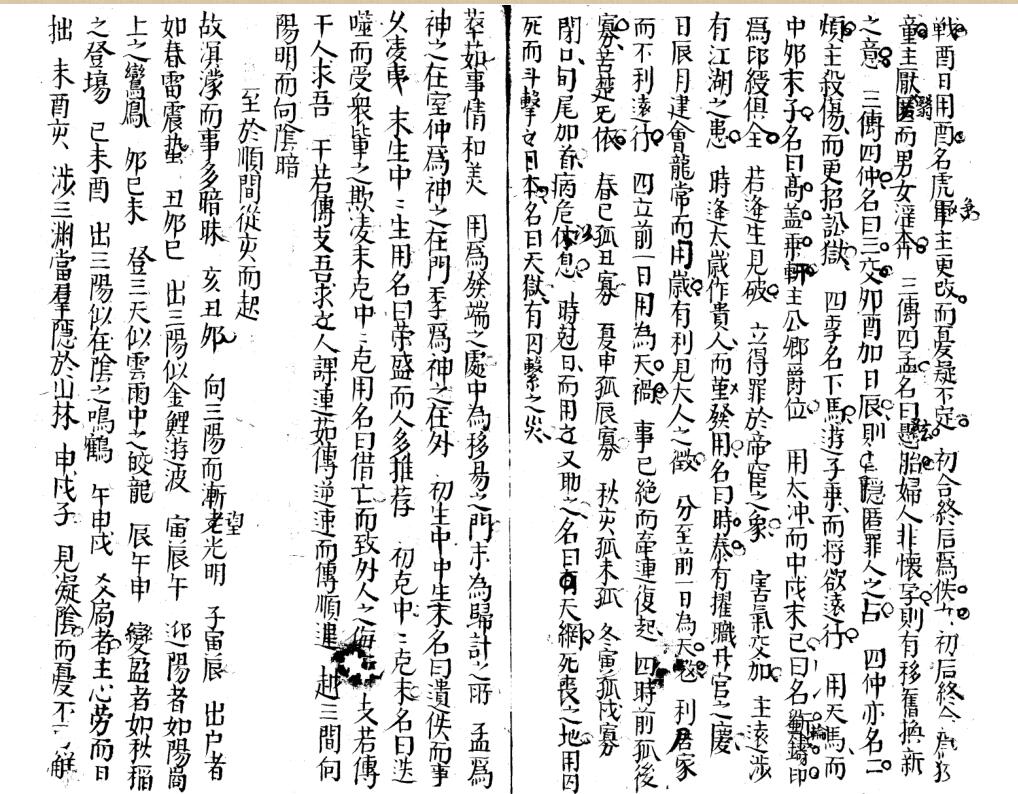 戰酉日用酉名虎軍主更改而憂疑不定初合終后爲佚女初后終合爲狡
童主厭匿而男女淫奔三傳四孟名曰懸胎婦人非懷孕則有移舊換新
之意三傳四仲名曰三交夘酉加日辰則隱匿罪人之占四仲亦名二
煩主殺傷而更招訟獄四季名下馬遊子乗而将欲遠行用天馬而
中夘末子名曰高盖乘軒主公卿爵位用太冲而中戍末巳曰名鑄印
爲印綬俱全若逢生見破立得罪於帝宸之象害氣交加主遠涉
有江湖之患時逢太歲作貴人而堇發用名曰時泰有擢職升官之慶
日辰月建會龍常而用歲有利見大人之徵分至前一日為天利居家
而不利遠行四立前一日用為天禍事已絶而牽連復起四時前孤後
寡苦楚无依春巳孤丑寡夏申孤辰寡秋亥孤未孤冬寅孤戍寡
閉口旬尾加首病危休息時尅日而用又助之名曰天網死喪之地用囚
死而斗擊日本名曰天獄有囚繫之災
葦茹事情和美用爲發端之處中為移易之門末為歸計之所孟爲
神之在室仲爲神之在門季爲神之在外初生中中生末名曰遺佚而事
久凌夷末生中々生用名曰榮盛而人多推荐初克中々克末名曰迭
噬而受衆軰之欺凌末克中々克用名曰借亡而致外人之侮支若傳
干人求吾干若傳支吾求人課連茹傳逆連而傳順連越三間向
陽明而向陰暗
至於順間從亥而起
故溟濛而事多暗昧亥丑夘向三陽而漸望光明子寅辰出户者
如春雷震蟄丑夘巳出三陽似金鯉游波寅辰午迎陽者如陽啚
上之鸞鳳夘巳未登三天似雲雨中之蛟龍辰午申變盈者如秋稲
之登塲巳未酉出三陽似在陰之鳴鶴午申戍者主心劳而日
拙未酉亥涉三淵當羣隱於山林申戍子見凝陰而憂不了解